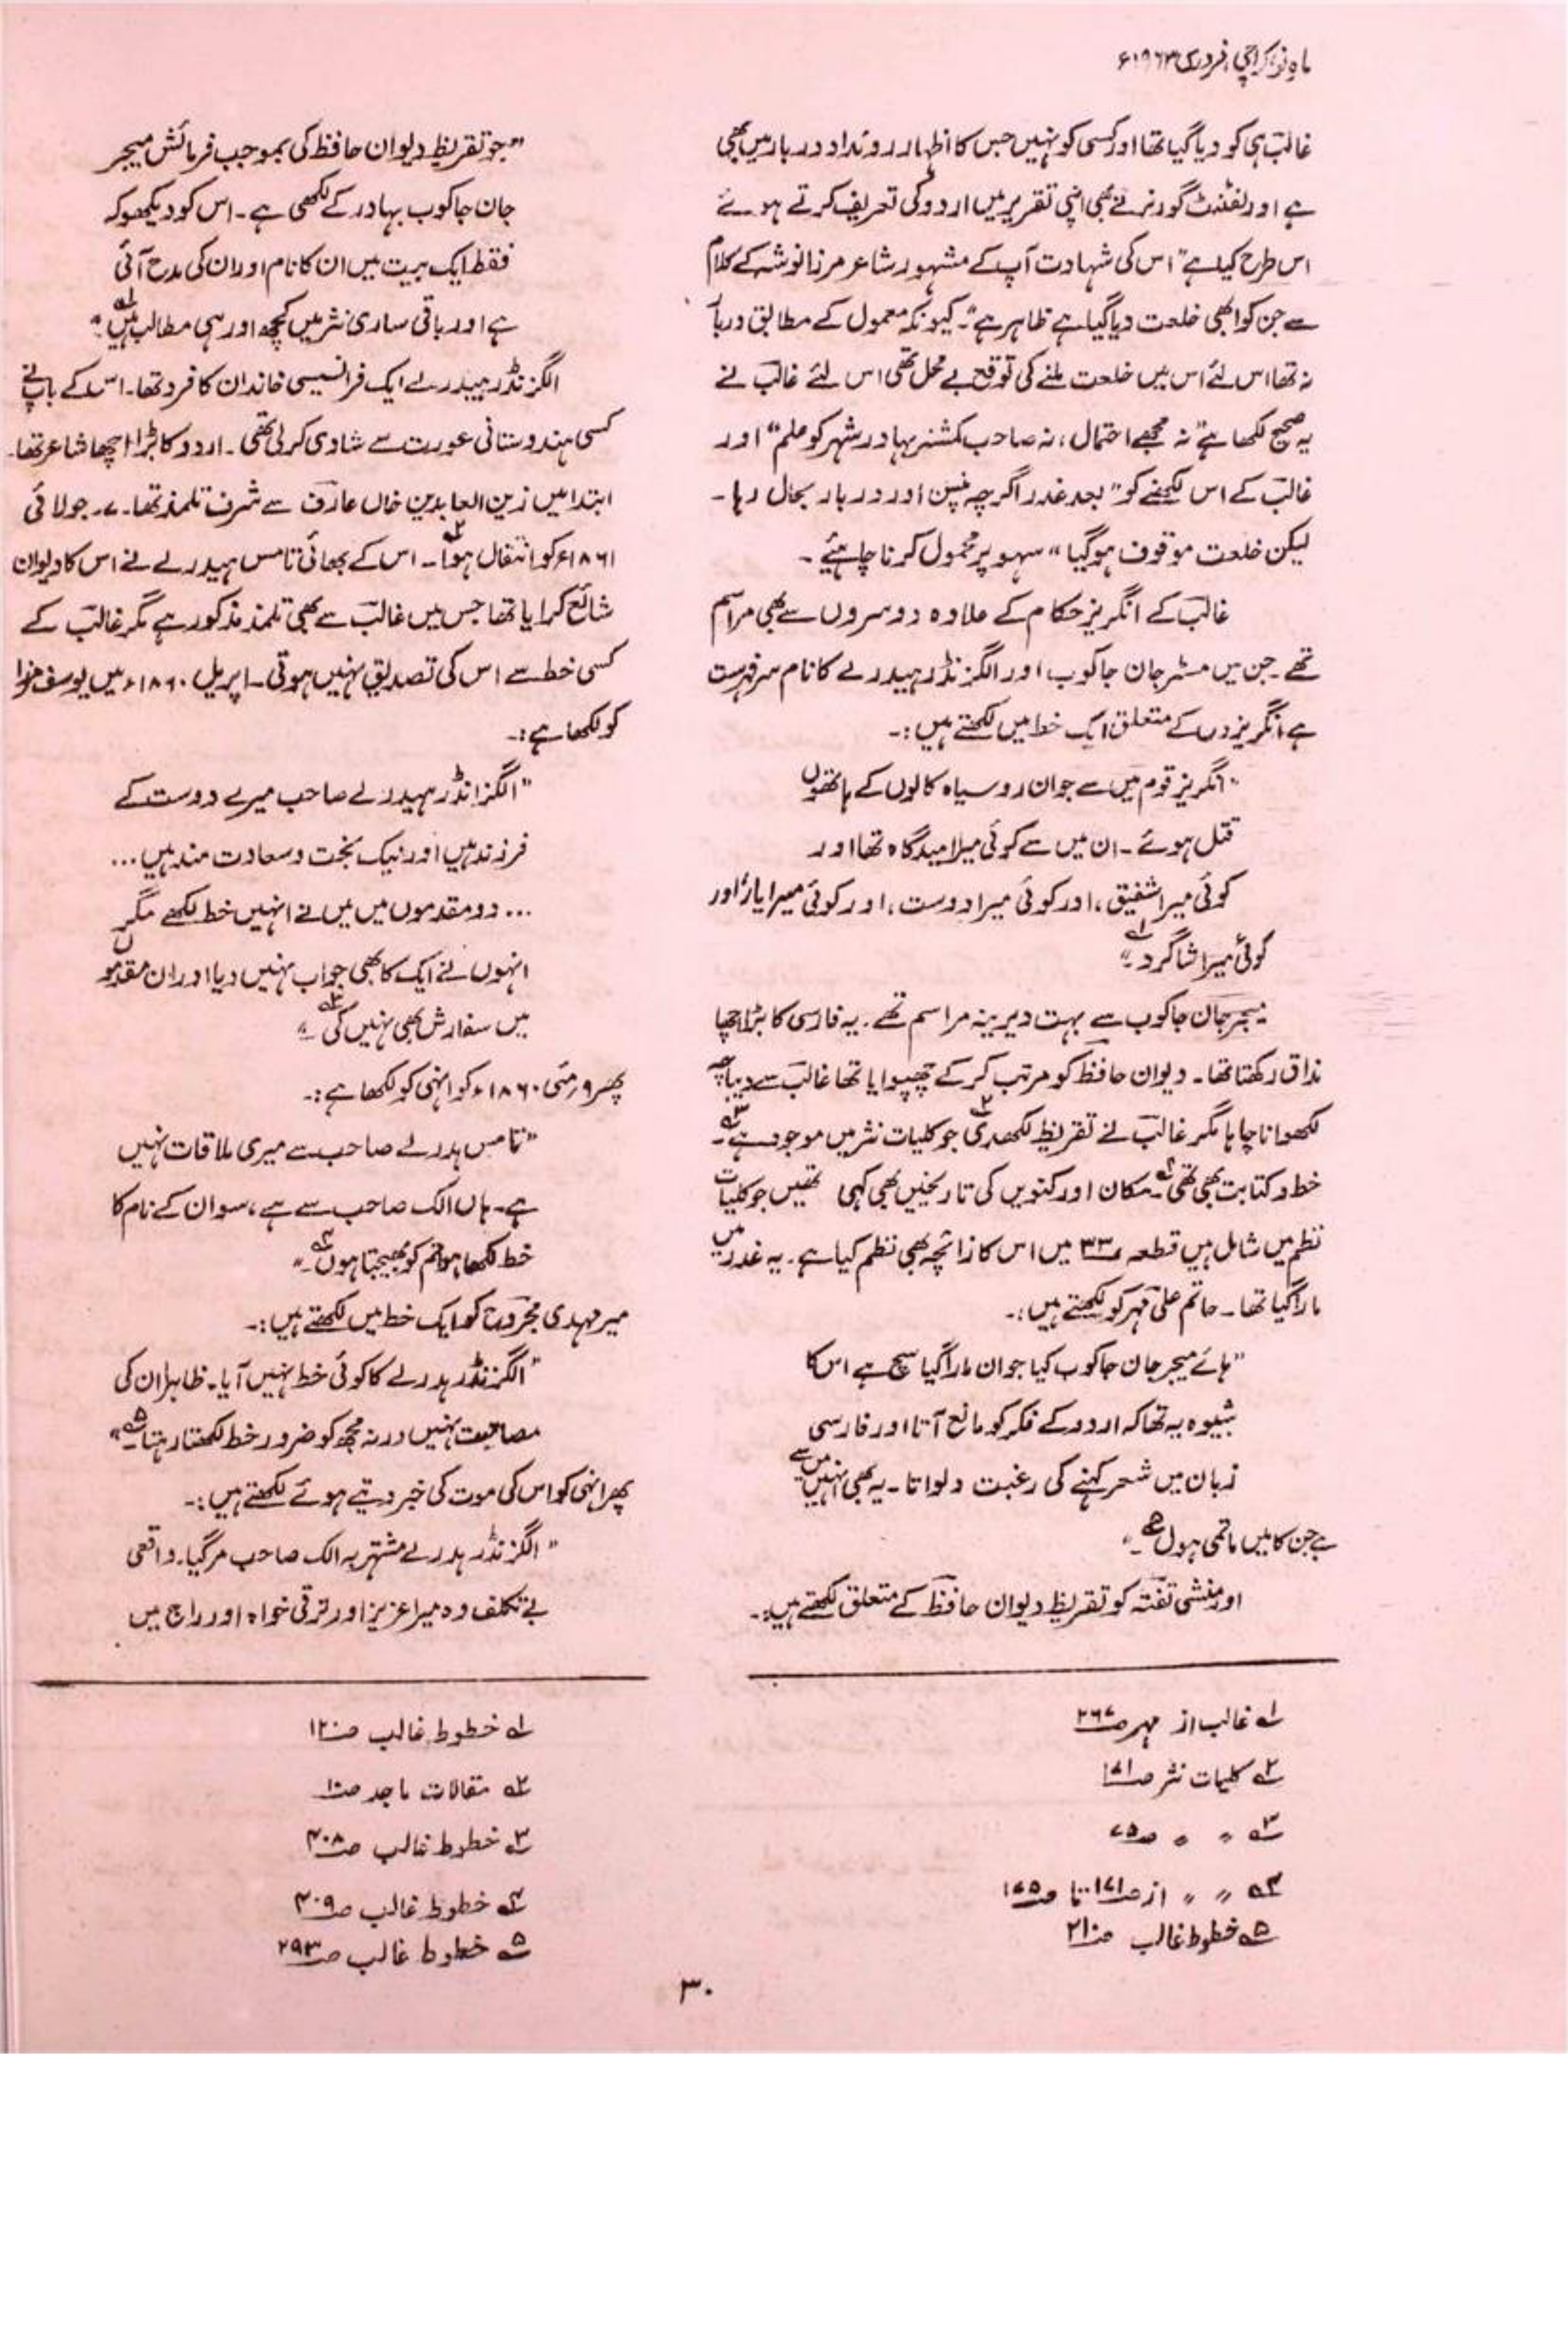 ماہِ نو، کراچی، فروری ۱۹۶۳ء
غالبؔ ہی کو دیا گیا تھا اور کسی کو نہیں جس کا اظہار روئداد دربار میں بھی
ہے اور لفٹنٹ گورنر نے بھی اپنی تقریر میں اردو کی تعریف کرتے ہوئے
اس طرح کیا ہے "اس کی شہادت آپ کے مشہور شاعر مرزا نوشہ کے کلام
سے جن کو ابھی خلعت دیا گیا ہے ظاہر ہے"۔ کیونکہ معمول کے مطابق دربار
نہ تھا اس لئے اس میں خلعت ملنے کی توقع بے محل تھی اس لئے غالبؔ نے
یہ صحیح لکھا ہے "نہ مجھے احتمال، نہ صاحب کمشنر بہادر شہر کو علم" اور
غالبؔ کے اس لکھنے کو "بعد غدر اگرچہ پنسن اور دربار بحال رہا۔
لیکن خلعت موقوف ہو گیا" سہو پر محمول کرنا چاہیئے۔
غالبؔ کے انگریز حکام کے علاوہ دوسروں سے بھی مراسم
تھے۔ جن میں مسٹر جان جاکوب اور الگزنڈر ہیدرلے کا نام سرفہرست
ہے انگریزوں کے متعلق ایک خط میں لکھتے ہیں:۔
"انگریز قوم میں سے جو ان روسیاہ کالوں کے ہاتھوں
قتل ہوئے۔ ان میں سے کوئی میرا امیدگاہ تھا اور
کوئی میرا شفیق، اور کوئی میرا دوست، اور کوئی میرا یار، اور
کوئی میرا شاگرد۔" ۱؎
میجر جان جاکوب سے بہت دیرینہ مراسم تھے۔ یہ فارسی کا بڑا اچھا
مذاق رکھتا تھا۔ دیوان حافظؔ کو مرتب کرکے چھپوایا تھا غالبؔ سے دیباچہ
لکھوانا چاہا مگر غالبؔ نے تقریظ لکھدی ۲؎ جو کلیات نثر میں موجود ہے ۳؎۔
خط و کتابت بھی تھی ۴؎۔ مکان اور کنویں کی تاریخیں بھی کہی تھیں جو کلیات
نظم میں شامل ہیں قطعہ ۳۳ میں اس کا زائچہ بھی نظم کیا ہے۔ یہ غدر میں
مارا گیا تھا۔ حاتم علی مہرؔ کو لکھتے ہیں:۔
"ہائے میجر جان جاکوب کیا جوان مارا گیا سچ ہے اس کا
شیوہ یہ تھا کہ اردو کے فکر کو مانع آتا اور فارسی
زبان میں شعر کہنے کی رغبت دلواتا۔ یہ بھی انہیں میں سے
ہے جن کا میں ماتمی ہوں ۵؎۔"
اور منشی تفتہؔ کو تقریظ دیوان حافظؔ کے متعلق لکھتے ہیں:۔
۱؎ غالب از مہر ص۲۶۷
۲؎ کلیات نثر ص۱۷۱
۳؎ " " ص۷۵
۴؎ " " از ص۱۷۱ تا ص۱۷۵
۵؎ خطوط غالب ص۲۱۰
"جو تقریظ دیوان حافظ کی بموجب فرمائش میجر
جان جاکوب بہادر کے لکھی ہے۔ اس کو دیکھو کہ
فقط ایک بیت میں ان کا نام اور ان کی مدح آئی
ہے اور باقی ساری نثر میں کچھ اور ہی مطالب ہیں ۱؎۔"
الگزنڈر ہیدرلے ایک فرانسیسی خاندان کا فرد تھا۔ اس کے باپ نے
کسی ہندوستانی عورت سے شادی کرلی تھی۔ اردو کا بڑا اچھا شاعر تھا۔
ابتدا میں زین العابدین خاں عارفؔ سے شرف تلمذ تھا۔ ۷۔ جولائی
۱۸۶۱ء کو انتقال ہوا ۲؎۔ اس کے بھائی تامس ہیدرلے نے اس کا دیوان
شائع کرایا تھا جس میں غالبؔ سے بھی تلمذ مذکور ہے مگر غالبؔ کے
کسی خط سے اس کی تصدیق نہیں ہوتی۔ اپریل ۱۸۶۰ء میں یوسف مرزا
کو لکھا ہے:۔
"الگزانڈر ہیدرلے صاحب میرے دوست کے
فرزند ہیں اور نیک بخت و سعادت مند ہیں...
... دو مقدموں میں میں نے انہیں خط لکھے مگر
انہوں نے ایک کا بھی جواب نہیں دیا اور ان مقدموں
میں سفارش بھی نہیں کی ۳؎۔"
پھر ۹؍مئی ۱۸۶۰ء کو انہی کو لکھا ہے:۔
"تامس ہدرلے صاحب سے میری ملاقات نہیں
ہے۔ ہاں الک صاحب سے ہے، سو ان کے نام کا
خط لکھا ہوا تم کو بھیجتا ہوں ۴؎۔"
میر مہدی مجروحؔ کو ایک خط میں لکھتے ہیں:۔
"الگزنڈر ہدرلے کا کوئی خط نہیں آیا۔ ظاہرا ان کی
مصاحبت نہیں ورنہ مجھ کو ضرور خط لکھتا رہتا ۵؎۔"
پھر انہی کو اس کی موت کی خبر دیتے ہوئے لکھتے ہیں:۔
"الگزنڈر ہدرلے مشتہر بہ الک صاحب مر گیا۔ واقعی
بے تکلف وہ میرا عزیز اور ترقی خواہ اور راج میں
۱؎ خطوط غالب ص۱۲۰
۲؎ مقالات ماجد ص۱۰
۳؎ خطوط غالب ص۴۰۸
۴؎ خطوط غالب ص۴۰۹
۵؎ خطوط غالب ص۲۹۳
۳۰